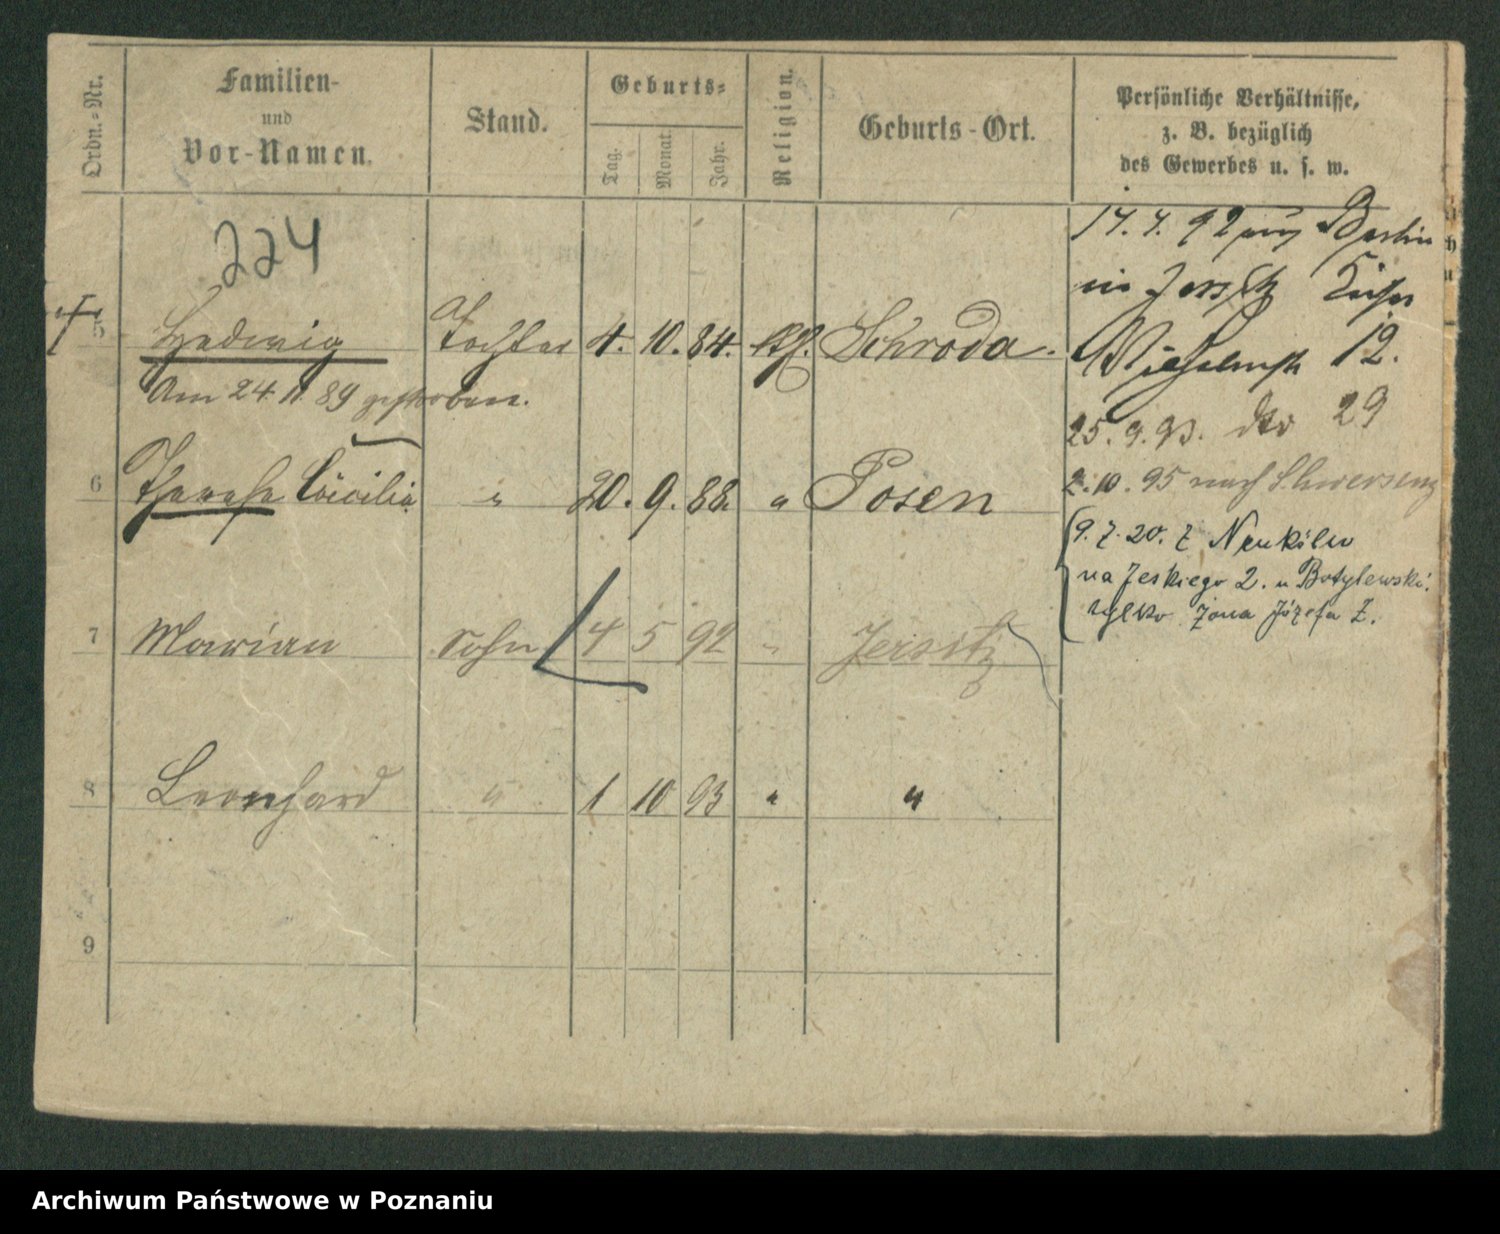 Ordn.-Nr.
Familien-
und
Vor-Namen.
Stand.
Geburts-
Tag.
Monat.
Jahr.
Religion.
Geburts-Ort.
Persönliche Verhältnisse,
z. B. bezüglich
des Gewerbes u. s. w.
224
5 Hedwig Tochter 4. 10. 84. kth. Schroda.
Am 24. 11. 89 gestorben.
6 Therese Cäcilie " 20. 9. 88. " Posen
7 Marian Sohn 4 5 92 " Jersitz
8 Leonhard " 1 10 93 " "
9
17. 7. 92 aus Berlin
in Jersitz Kaiser
Wilhelmstr 12.
25. 9. 93. dto 29
2. 10. 95 nach Schwersenz
9. 7. 20. z Neukölln
na Jeskiego 2. u Botylewski.
tylko żona Józefa Z.
Archiwum Państwowe w Poznaniu